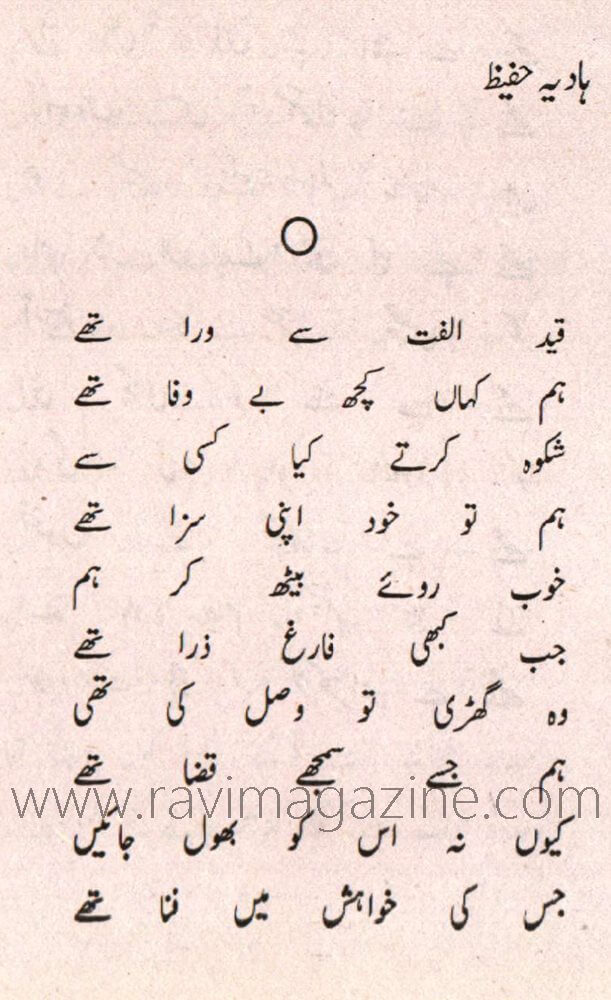 ہادیہ حفیظ
قید الفت سے ورا تھے
ہم کہاں کچھ بے وفا تھے
شکوہ کرتے کیا کسی سے
ہم تو خود اپنی سزا تھے
خوب روئے بیٹھ کر ہم
جب کبھی فارغ ذرا تھے
وہ گھڑی تو وصل کی تھی
ہم جسے سمجھے قضا تھے
www.ravimagazine.com
کیوں نہ اس کو بھول جائیں
جس کی خواہش میں فنا تھے